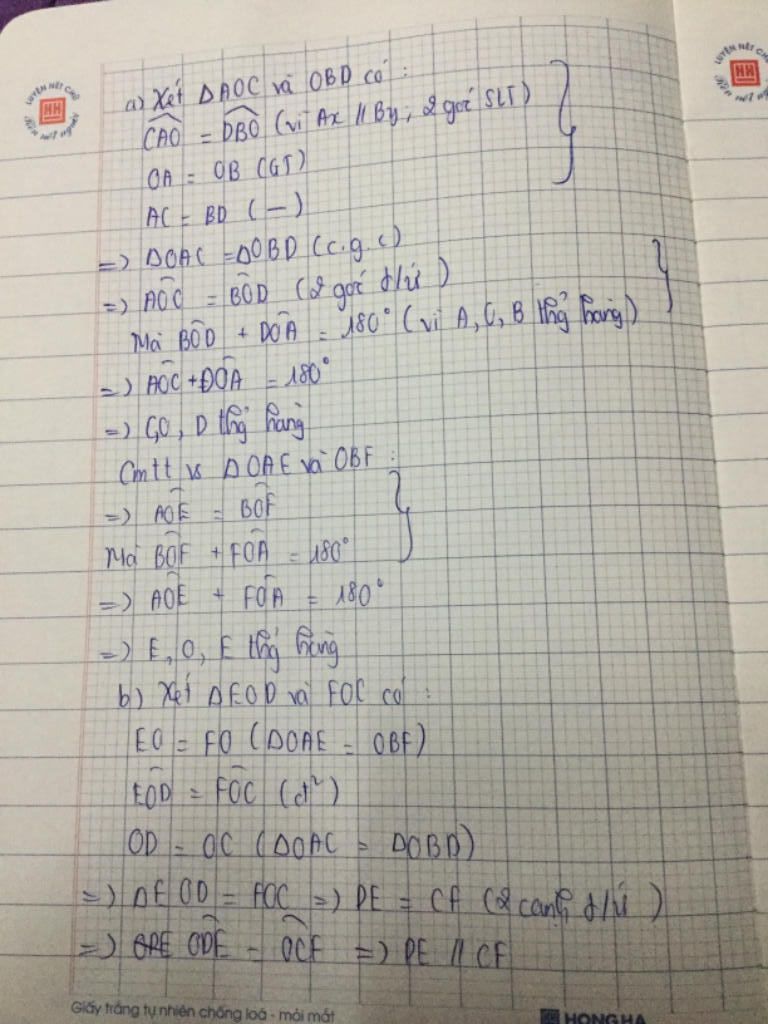 LUYỆN NÉT CHỮ
HH
a) Xét ΔAOC và OBD có :
CAO = DBO (vì Ax // By, 2 góc SLT)
OA = OB (GT)
AC = BD ( — )
=> ΔOAC = ΔOBD (c.g.c)
=> AOC = BOD (2 góc t/ứ)
Mà BOD + DOA = 180° (vì A, O, B thẳng hàng)
=> AOC + DOA = 180°
=> C,O, D thẳng hàng
Cmtt vs ΔOAE và OBF :
=> AOE = BOF
Mà BOF + FOA = 180°
=> AOE + FOA = 180°
=> E, O, E thẳng hàng
b) Xét ΔEOD và FOC có :
EO = FO (ΔOAE = OBF)
EOD = FOC (đ²)
OD = OC (ΔOAC = ΔOBD)
=> ΔEOD = FOC => DE = CF (2 cạnh t/ứ)
=> ODE = OCF => DE // CF
Giấy trắng tự nhiên chống loá - mỏi mắt
HONG HA